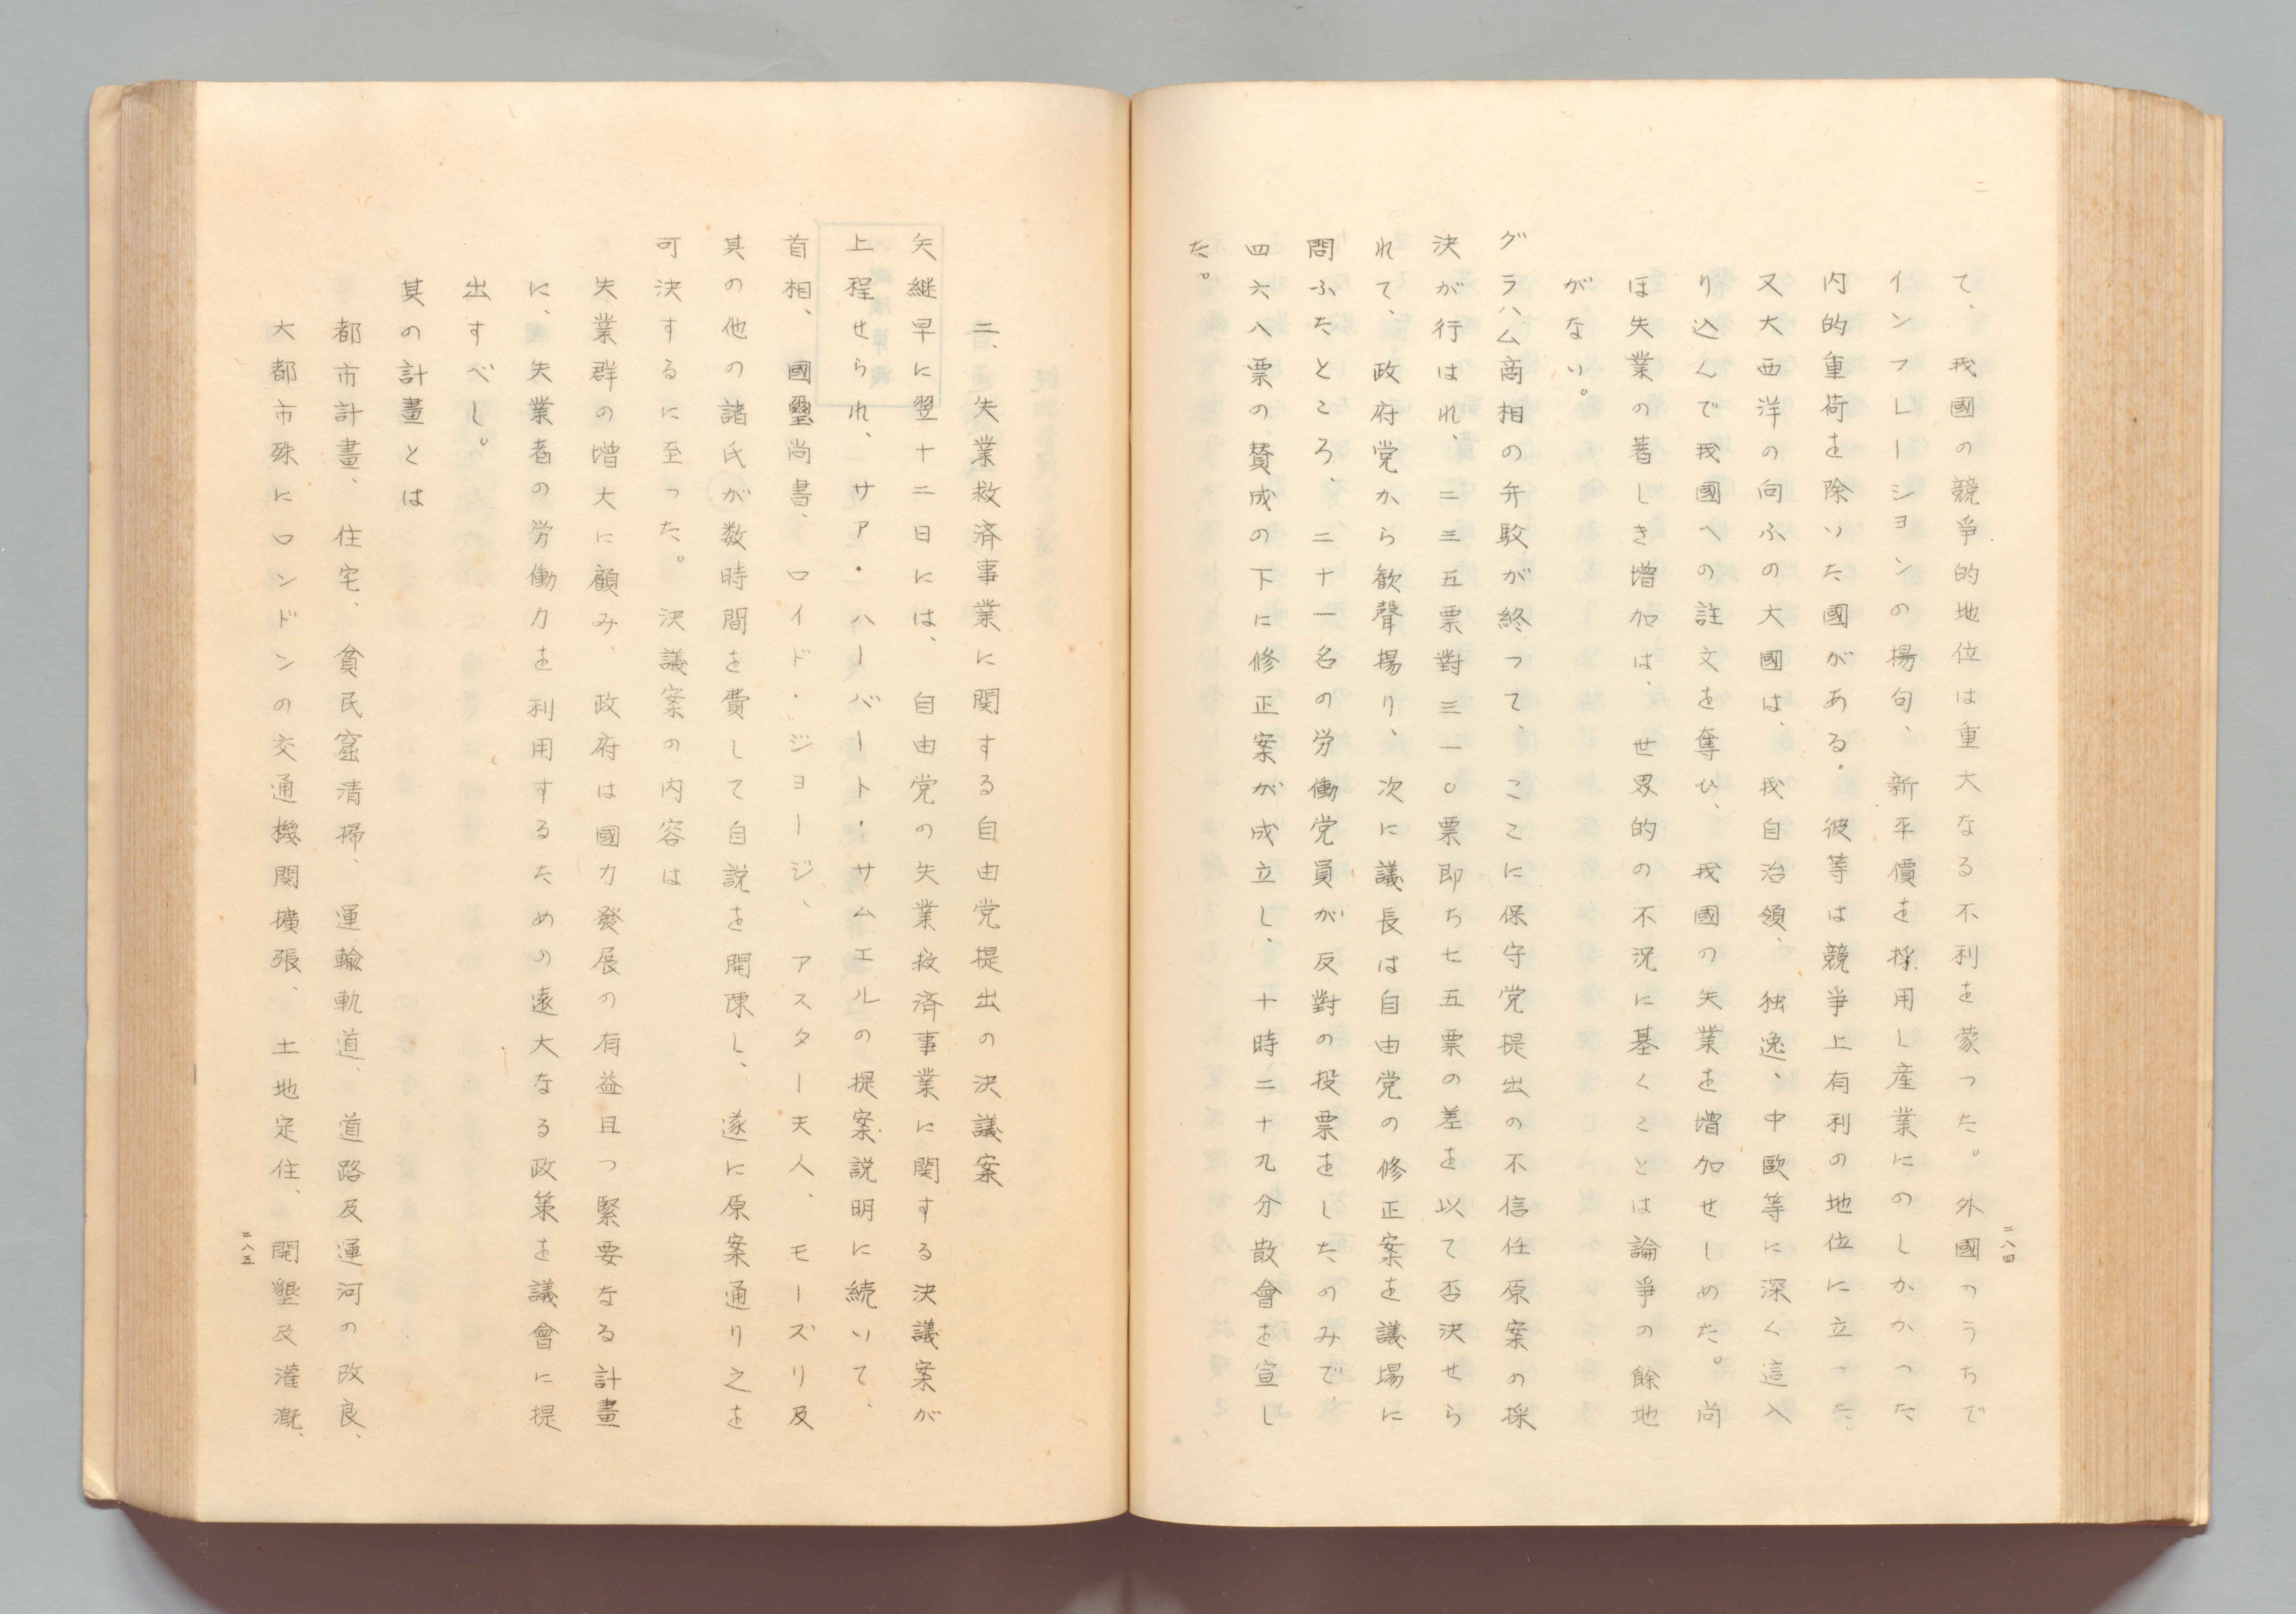 て、我國の競爭的地位は重大なる不利を蒙つた。外國のうちで
インフレーションの揚句、新平價を採用し産業にのしかかつた
内的重荷を除いた國がある。彼等は競爭上有利の地位に立つた。
又大西洋の向ふの大國は、我自治領、独逸、中歐等に深く這入
り込んで我國への註文を奪ひ、我國の失業を増加せしめた。尚
ほ失業の著しき増加は、世界的の不況に基くことは論爭の餘地
がない。
グラハム商相の弁駁が終つて、ここに保守党提出の不信任原案の採
決が行はれ、二三五票對三一〇票即ち七五票の差を以て否決せら
れて、政府党から歓聲揚り、次に議長は自由党の修正案を議場に
問ふたところ、二十一名の労働党員が反對の投票をしたのみで、
四六八票の賛成の下に修正案が成立し、十時二十九分散會を宣し
た。
二八四
二、失業救済事業に関する自由党提出の決議案
矢継早に翌十二日には、自由党の失業救済事業に関する決議案が
上程せられ、サア・ハーバート・サムエルの提案説明に続いて、
首相、國璽尚書、ロイド・ジョージ、アスター夫人、モーズリ及
其の他の諸氏が数時間を費して自説を開陳し、遂に原案通り之を
可決するに至つた。決議案の内容は
失業群の増大に顧み、政府は國力發展の有益且つ緊要なる計畫
に、失業者の労働力を利用するための遠大なる政策を議會に提
出すべし。
其の計畫とは
都市計畫、住宅、貧民窟清掃、運輸軌道、道路及運河の改良、
大都市殊にロンドンの交通機関擴張、土地定住、開墾及灌漑、
二八五